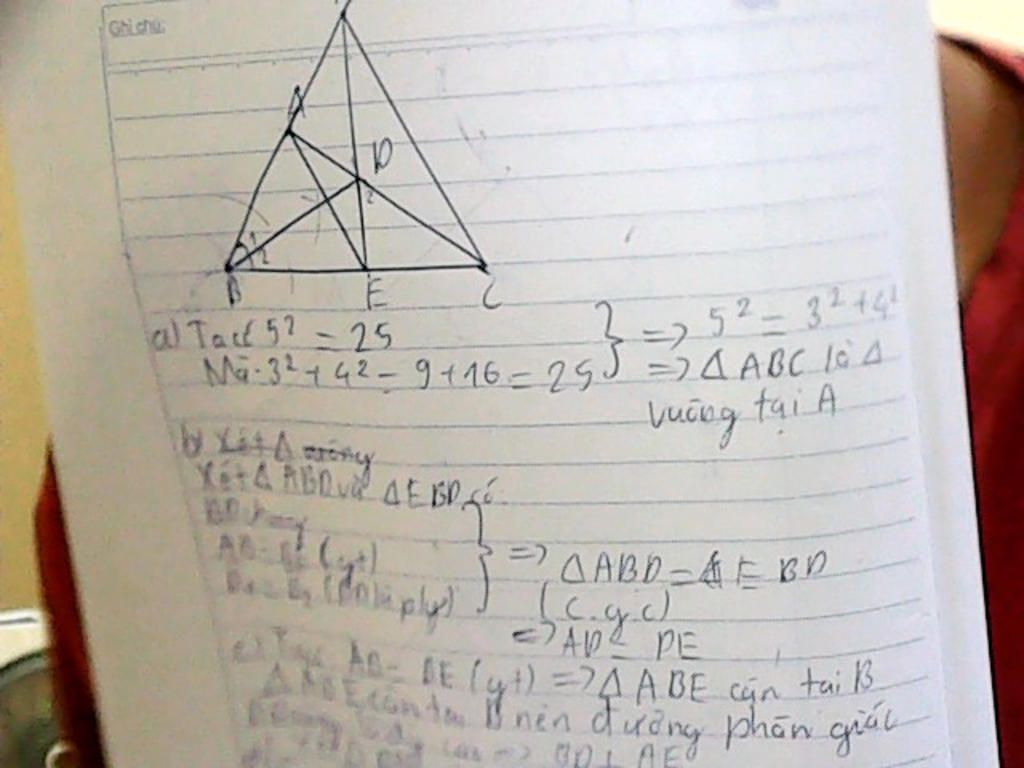 Ghi chú:
A
D
2
1
2
B E C
a) Ta có 5² = 25
Mà 3² + 4² = 9 + 16 = 25
=> 5² = 3² + 4²
=> Δ ABC là Δ
vuông tại A
b) Xét Δ vuông
Xét Δ ABD và Δ EBD có
BD chung
AB = BE (gt)
B₁ = B₂ (BD là p/g)
=> Δ ABD = Δ EBD
(c.g.c)
=> AD = DE
c) Ta có AB = BE (gt) => Δ ABE cân tại B
Δ ABE cân tại B nên đường phân giác
=> BD ⊥ AE